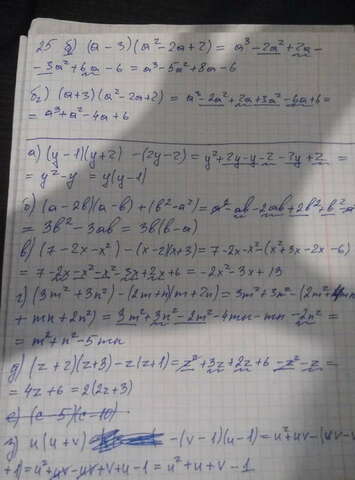 25 б) (a - 3)(a² - 2a + 2) = a³ - 2a² + 2a -
- 3a² + 6a - 6 = a³ - 5a² + 8a - 6
б₂) (a+3)(a² - 2a + 2) = a³ - 2a² + 2a + 3a² - 6a + 6 =
= a³ + a² - 4a + 6
а) (y - 1)(y + 2) - (2y - 2) = y² + 2y - y - 2 - 2y + 2 =
= y² - y = y(y - 1)
б) (a - 2b)(a - b) + (b² - a²) = a² - ab - 2ab + 2b² + b² - a²
= 3b² - 3ab = 3b(b - a)
в) (7 - 2x - x²) - (x - 2)(x + 3) = 7 - 2x - x² - (x² + 3x - 2x - 6)
= 7 - 2x - x² - x² - 3x + 2x + 6 = -2x² - 3x + 13
г) (3m² + 3n²) - (2m + n)(m + 2n) = 3m² + 3n² - (2m² + 4mn
+ mn + 2n²) = 3m² + 3n² - 2m² - 4mn - mn - 2n² =
= m² + n² - 5mn
д) (z + 2)(z + 3) - z(z + 1) = z² + 3z + 2z + 6 - z² - z =
= 4z + 6 = 2(2z + 3)
е) (c - 5)(c - 10)
з) u(u + v) - (v - 1)(u - 1) = u² + uv - (uv - v
+ 1) = u² + uv - uv + v + u - 1 = u² + u + v - 1